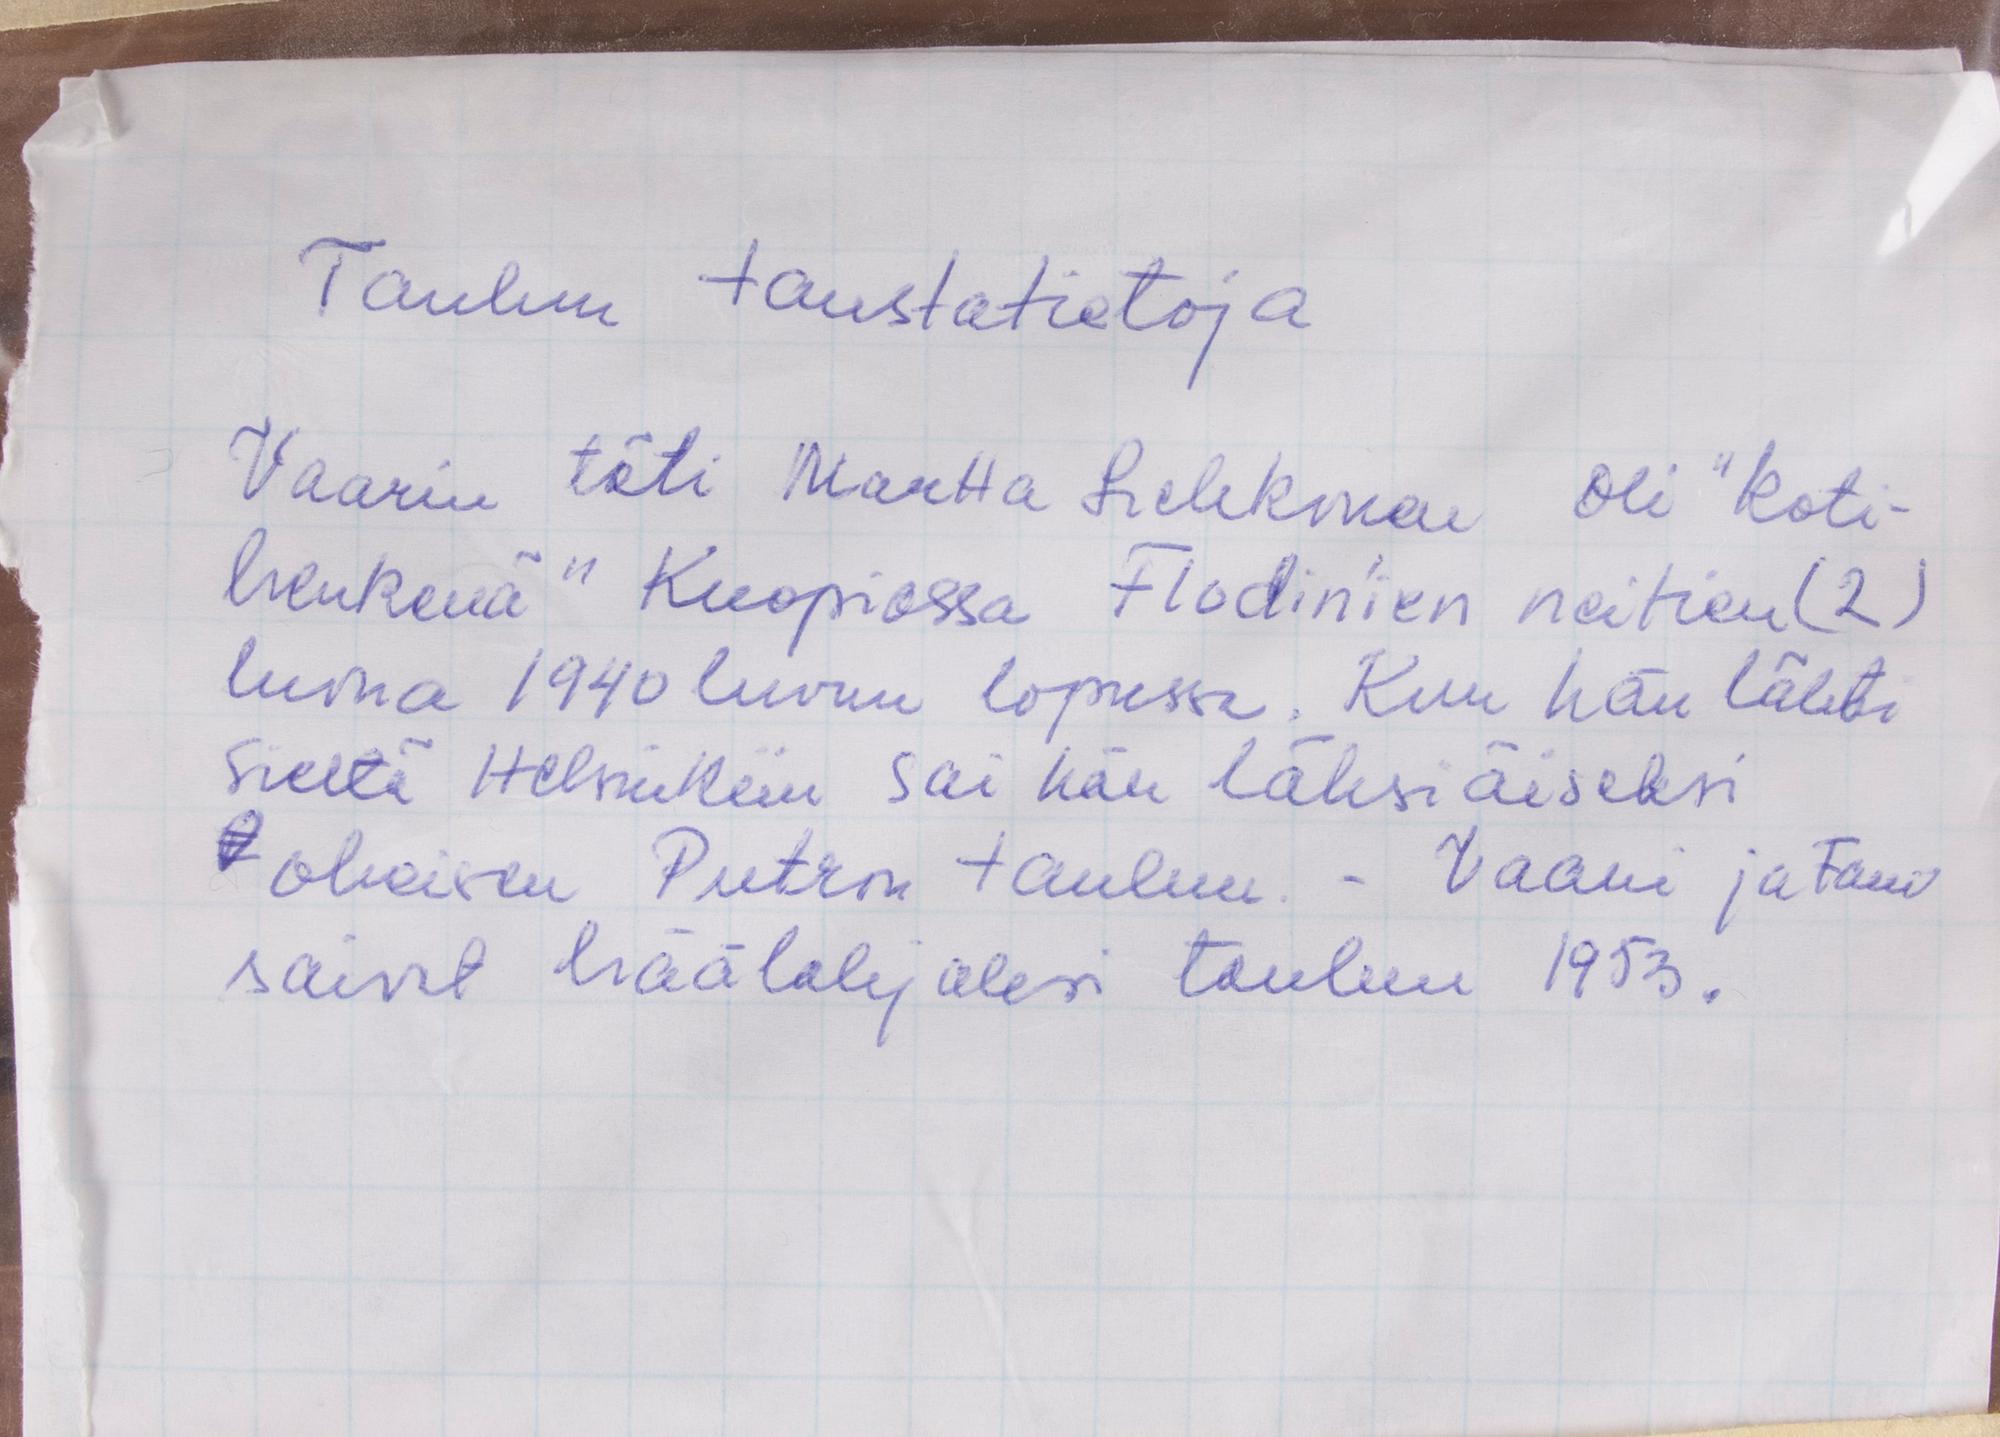 Taulun taustatietoja
Vaarin täti Martta oli "koti-
henkenä" Kuopiossa Flodin'ien neitien (2)
luona 1940 luvun lopussa. Kun hän lähti
sieltä Helsinkiin sai hän lähsiäiseksi
oheisen Putron taulun. - Vaari ja
saivat häälahjaksi taulun 1953.